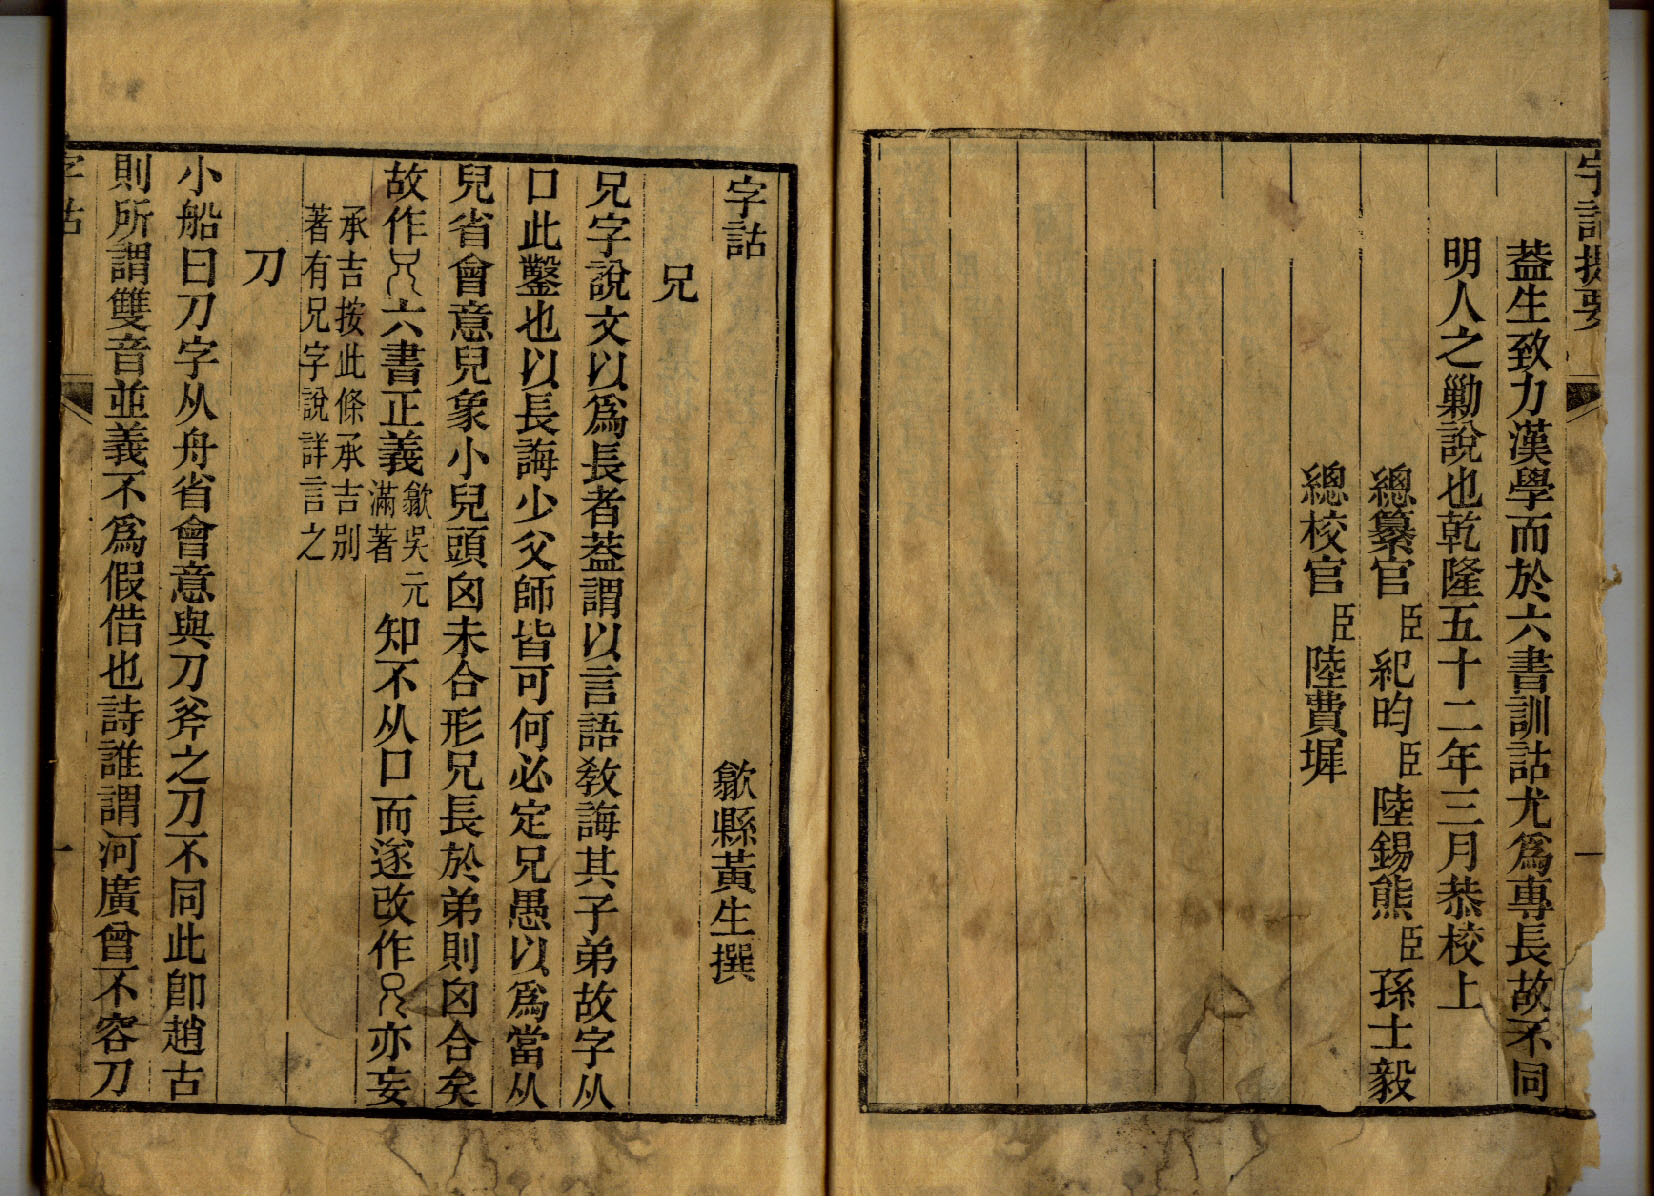 字詁提要
蓋生致力漢學而於六書訓詁尤爲專長故不同
明人之勦說也乾隆五十二年三月恭校上
總纂官臣紀昀臣陸錫熊臣孫士毅
總校官臣陸費墀
字詁
歙縣黃生撰
兄
兄字說文以爲長者葢謂以言語教誨其子弟故字从
口此鑿也以長誨少父師皆可何必定兄愚以爲當从
兒省會意兒象小兒頭囟未合形兄長於弟則囟合矣
故作兄六書正義歙吳元滿著知不从口而遂改作兄亦妄
承吉按此條承吉別
著有兄字說詳言之
刀
小船曰刀字从舟省會意與刀斧之刀不同此卽趙古
則所謂雙音並義不爲假借也詩誰謂河廣曾不容刀
字詁
一